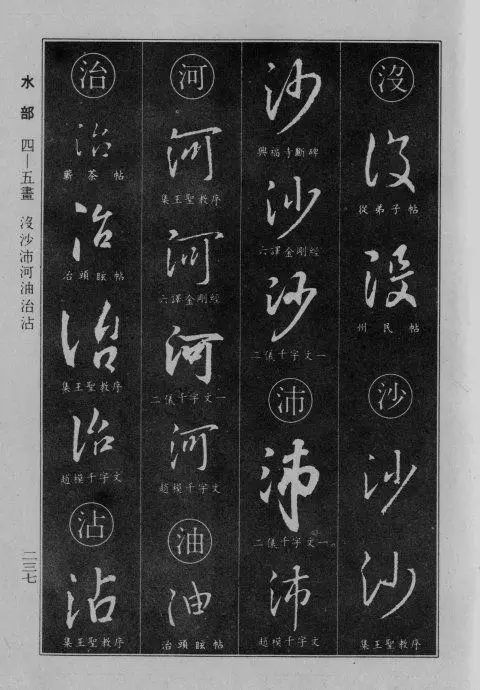 沒
沒
從弟子帖
沒
州民帖
沙
沙
沙
集王聖敎序
沙
興福寺斷碑
沙
六譯金剛經
沙
二儀千字文一
沛
沛
二儀千字文一
沛
趙模千字文
河
河
集王聖敎序
河
六譯金剛經
河
二儀千字文一
河
趙模千字文
油
油
治頭眩帖
治
治
帖
治
治頭眩帖
治
集王聖敎序
治
趙模千字文
沾
沾
集王聖敎序
水部 四—五畫 沒沙沛河油治沾
二三七